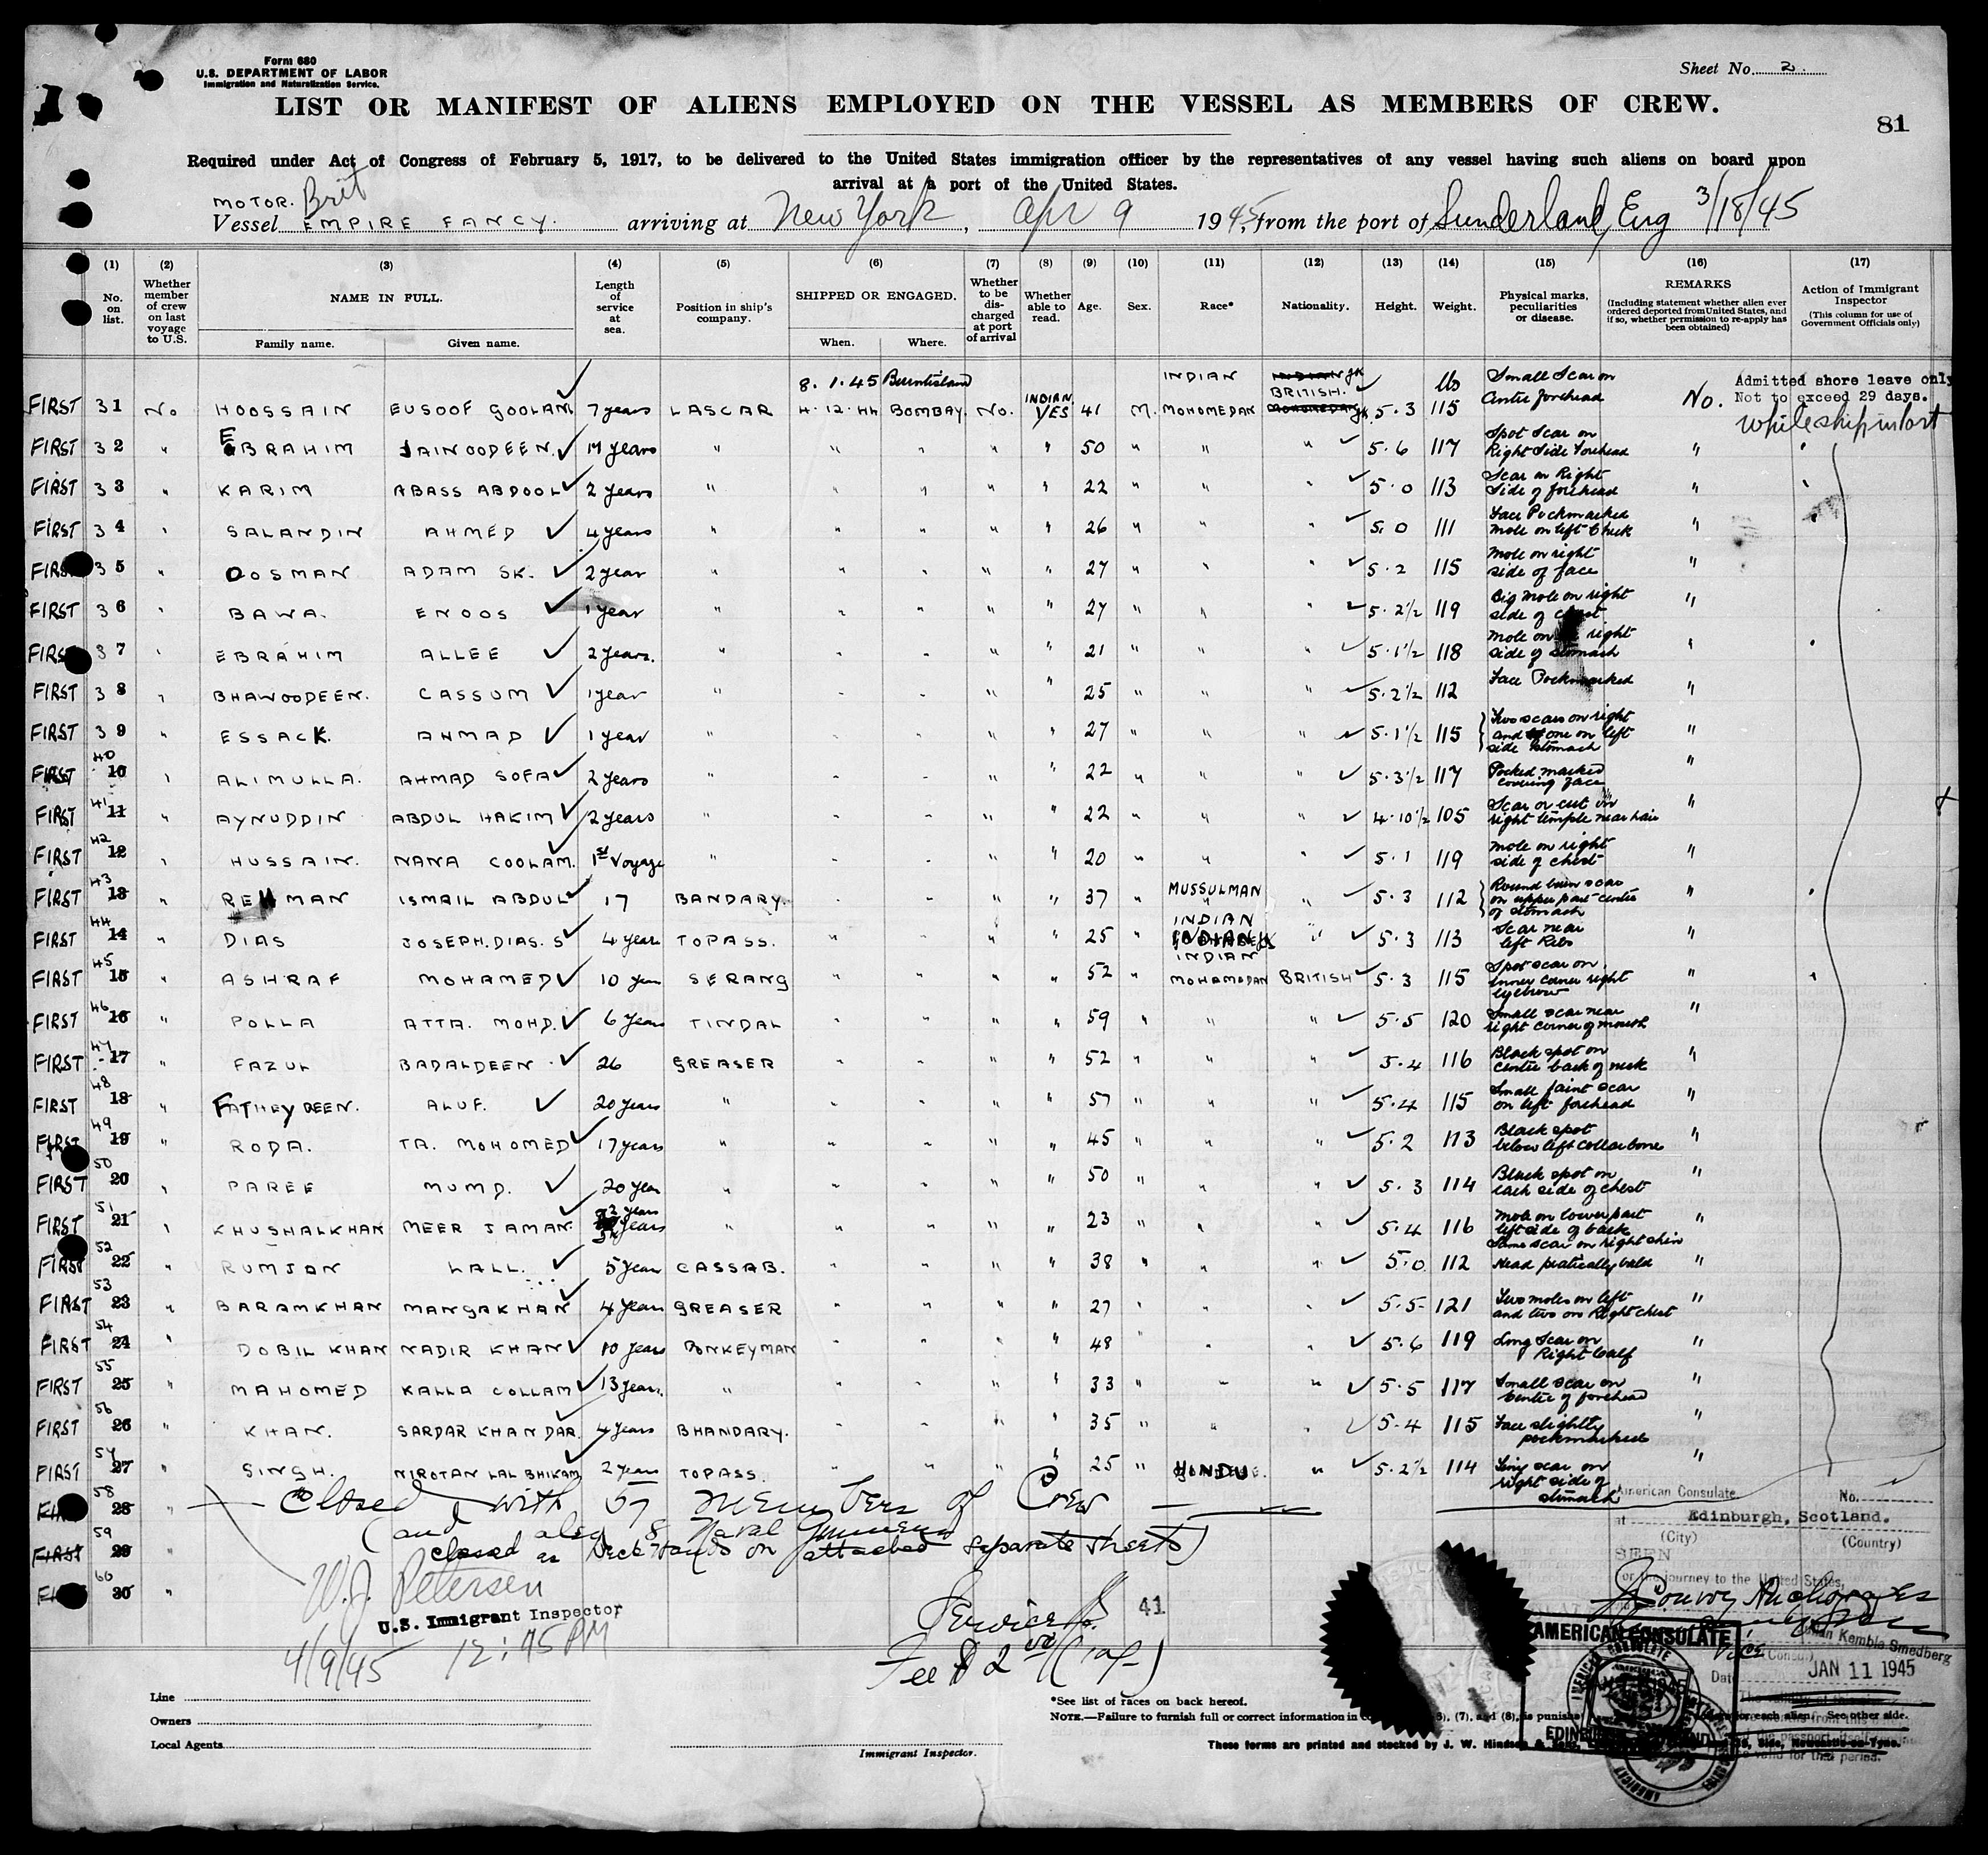 Form 680
U.S. DEPARTMENT OF LABOR
Immigration and Naturalization Service.
Sheet No. 2.
1
LIST OR MANIFEST OF ALIENS EMPLOYED ON THE VESSEL AS MEMBERS OF CREW.
81
Required under Act of Congress of February 5, 1917, to be delivered to the United States immigration officer by the representatives of any vessel having such aliens on board upon
arrival at a port of the United States.
MOTOR. Brit
Vessel EMPIRE FANCY. arriving at New York, Apr 9 1945, from the port of Sunderland, Eng 3/18/45
(1) (2) (3) (4) (5) (6) (7) (8) (9) (10) (11) (12) (13) (14) (15) (16) (17)
No. on list. Whether member of crew on last voyage to U.S. NAME IN FULL. Family name. Given name. Length of service at sea. Position in ship's company. SHIPPED OR ENGAGED. When. Where. Whether to be discharged at port of arrival Whether able to read. Age. Sex. Race* Nationality. Height. Weight. Physical marks, peculiarities or disease. REMARKS (Including statement whether alien ever ordered deported from United States, and if so, whether permission to re-apply has been obtained) Action of Immigrant Inspector (This column for use of Government Officials only)
8.1.45 Burntisland INDIAN BRITISH. lbs Small Scar on Admitted shore leave only
FIRST 31 No HOOSSAIN EUSOOF GOOLAM 7 years LASCAR 4.12.44 BOMBAY. No. INDIAN YES 41 M. MOHOMEDAN 5.3 115 Centre forehead No. Not to exceed 29 days.
while ship in port
FIRST 32 " EBRAHIM JAINOODEEN. 17 years " " " " " 50 " " " 5.6 117 Spot Scar on Right Side Forehead "
FIRST 33 " KARIM ABASS ABDOOL 2 years " " " " " 22 " " " 5.0 113 Scar on Right Side of forehead "
FIRST 34 " SALANDIN AHMED 4 years " " " " " 26 " " " 5.0 111 Face Pockmarked mole on left Cheek "
FIRST 35 " OOSMAN ADAM SK. 2 year " " " " " 27 " " " 5.2 115 Mole on right side of face "
FIRST 36 " BAWA. ENOOS 1 year " " " " " 27 " " " 5.2½ 119 Big mole on right side of chest "
FIRST 37 " EBRAHIM ALLEE 2 years. " " " " " 21 " " " 5.1½ 118 Mole on right side of stomach "
FIRST 38 " BHAWOODEEN. CASSUM 1 year " " " " " 25 " " " 5.2½ 112 Face Pockmarked "
FIRST 39 " ESSACK. AHMAD 1 year " " " " " 27 " " " 5.1½ 115 Two scars on right and one on left side stomach "
FIRST 40 10 " ALIMULLA. AHMAD SOFA 2 years " " " " " 22 " " " 5.3½ 117 Pocked marked covering face "
FIRST 41 11 " AYNUDDIN ABDUL HAKIM 2 years " " " " " 22 " " " 4.10½ 105 Scar or cut on right temple near hair "
FIRST 42 12 " HUSSAIN. NANA COOLAM. 1st Voyage " " " " " 20 " " " 5.1 119 Mole on right side of chest "
FIRST 43 13 " REHMAN ISMAIL ABDUL 17 BANDARY. " " " " 37 " MUSSULMAN " 5.3 112 Round burn scar on upper part center of stomach "
FIRST 44 14 " DIAS JOSEPH. DIAS. S 4 years TOPASS. " " " " 25 " INDIAN INDIAN " 5.3 113 Scar near left Ribs "
FIRST 45 15 " ASHRAF MOHAMED 10 years SERANG " " " " 52 " INDIAN MOHAMODAN BRITISH 5.3 115 Spot scar on inner corner right eyebrow "
FIRST 46 16 " POLLA ATTA. MOHD. 6 years TINDAL " " " " 59 " " " 5.5 120 Small scar near right corner of mouth "
FIRST 47 17 " FAZUL BADALDEEN 26 GREASER " " " " 52 " " " 5.4 116 Black spot on centre back of neck "
FIRST 48 18 " FATHEY DEEN. ALUF. 20 years " " " " " 57 " " " 5.4 115 Small faint scar on left forehead "
FIRST 49 19 " RODA. TA. MOHOMED 17 years " " " " " 45 " " " 5.2 113 Black spot below left collarbone "
FIRST 50 20 " PAREE MUMD. 20 year " " " " " 50 " " " 5.3 114 Black spot on each side of chest "
FIRST 51 21 " KHUSHALKHAN MEER JAMAN 2 years " " " " " 23 " " " 5.4 116 Mole on lower part left side of back "
FIRST 52 22 " RUMJAN LALL. 5 year CASSAB. " " " " 38 " " " 5.0 112 Some scar on right shin Head pratically bald "
FIRST 53 23 " BARAMKHAN MANGAKHAN 4 years GREASER " " " " 27 " " " 5.5 121 Two moles on left and two on Right chest "
FIRST 54 24 " DOBIL KHAN NADIR KHAN 10 years DONKEYMAN " " " " 48 " " " 5.6 119 Long Scar on Right Calf "
FIRST 55 25 " MAHOMED KALLA COLLAM 13 years. " " " " " 33 " " " 5.5 117 Small scar on centre of forehead "
FIRST 56 26 " KHAN. SARDAR KHAN DAR. 4 years BHANDARY. " " " " 35 " " " 5.4 115 Face slightly pockmarked "
FIRST 57 27 " SINGH. NIROTAN LAL BHIKAM 2 years TOPASS. " " " " 25 " HINDU. " 5.2½ 114 Tiny scar on right side of stomach "
FIRST 58 28 " Closed with 57 members of Crew
(and also 8 Naval Gunners
FIRST 59 29 closed as Deck Hands on attached separate sheets)
FIRST 60 30 "
W.J. Petersen
U.S. Immigrant Inspector
4/9/45 12:45 PM
Service No. 41
Fee $2.00 (10/-)
American Consulate. No.
at Edinburgh, Scotland.
(City) (Country)
SEEN
for the journey to the United States,
Convoy Anchorages
Vice Consul
Kemble Smedberg
Date JAN 11 1945
AMERICAN CONSULATE
EDINBURGH
Line
Owners
Local Agents
Immigrant Inspector.
*See list of races on back hereof.
NOTE.—Failure to furnish full or correct information in (7), and (8), is punishable for each alien. See other side.
These forms are printed and stocked by J. W. Hindson & Sons, Side, Newcastle-on-Tyne.
valid for this period.